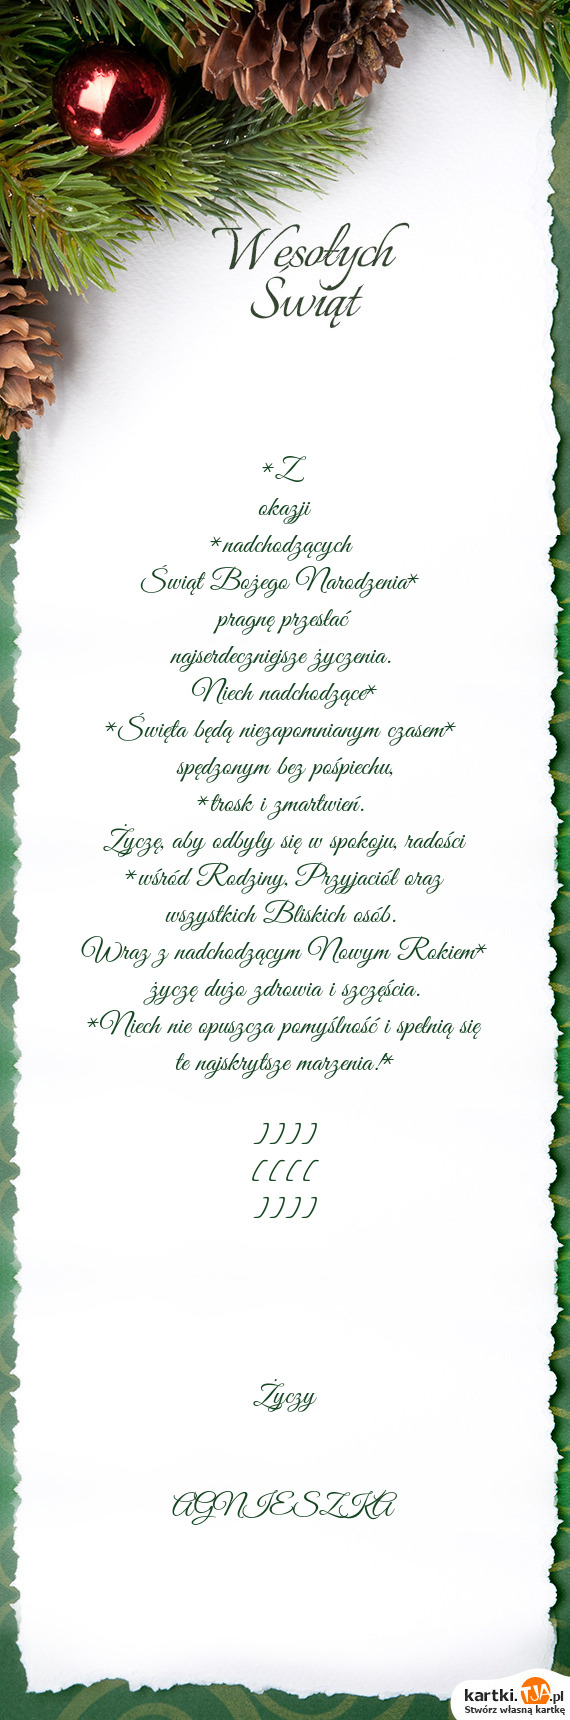 Wesołych
Świąt
*Z
okazji
*nadchodzących
Świąt Bożego Narodzenia*
pragnę przesłać
najserdeczniejsze życzenia.
Niech nadchodzące*
*Święta będą niezapomnianym czasem*
spędzonym bez pośpiechu,
*trosk i zmartwień.
Życzę, aby odbyły się w spokoju, radości
*wśród Rodziny, Przyjaciół oraz
wszystkich Bliskich osób.
Wraz z nadchodzącym Nowym Rokiem*
życzę dużo zdrowia i szczęścia.
*Niech nie opuszcza pomyślność i spełnią się
te najskrytsze marzenia.!*
))))
((((
))))
Życzy
AGNIESZKA
kartki.TJA.pl
Stwórz własną kartkę